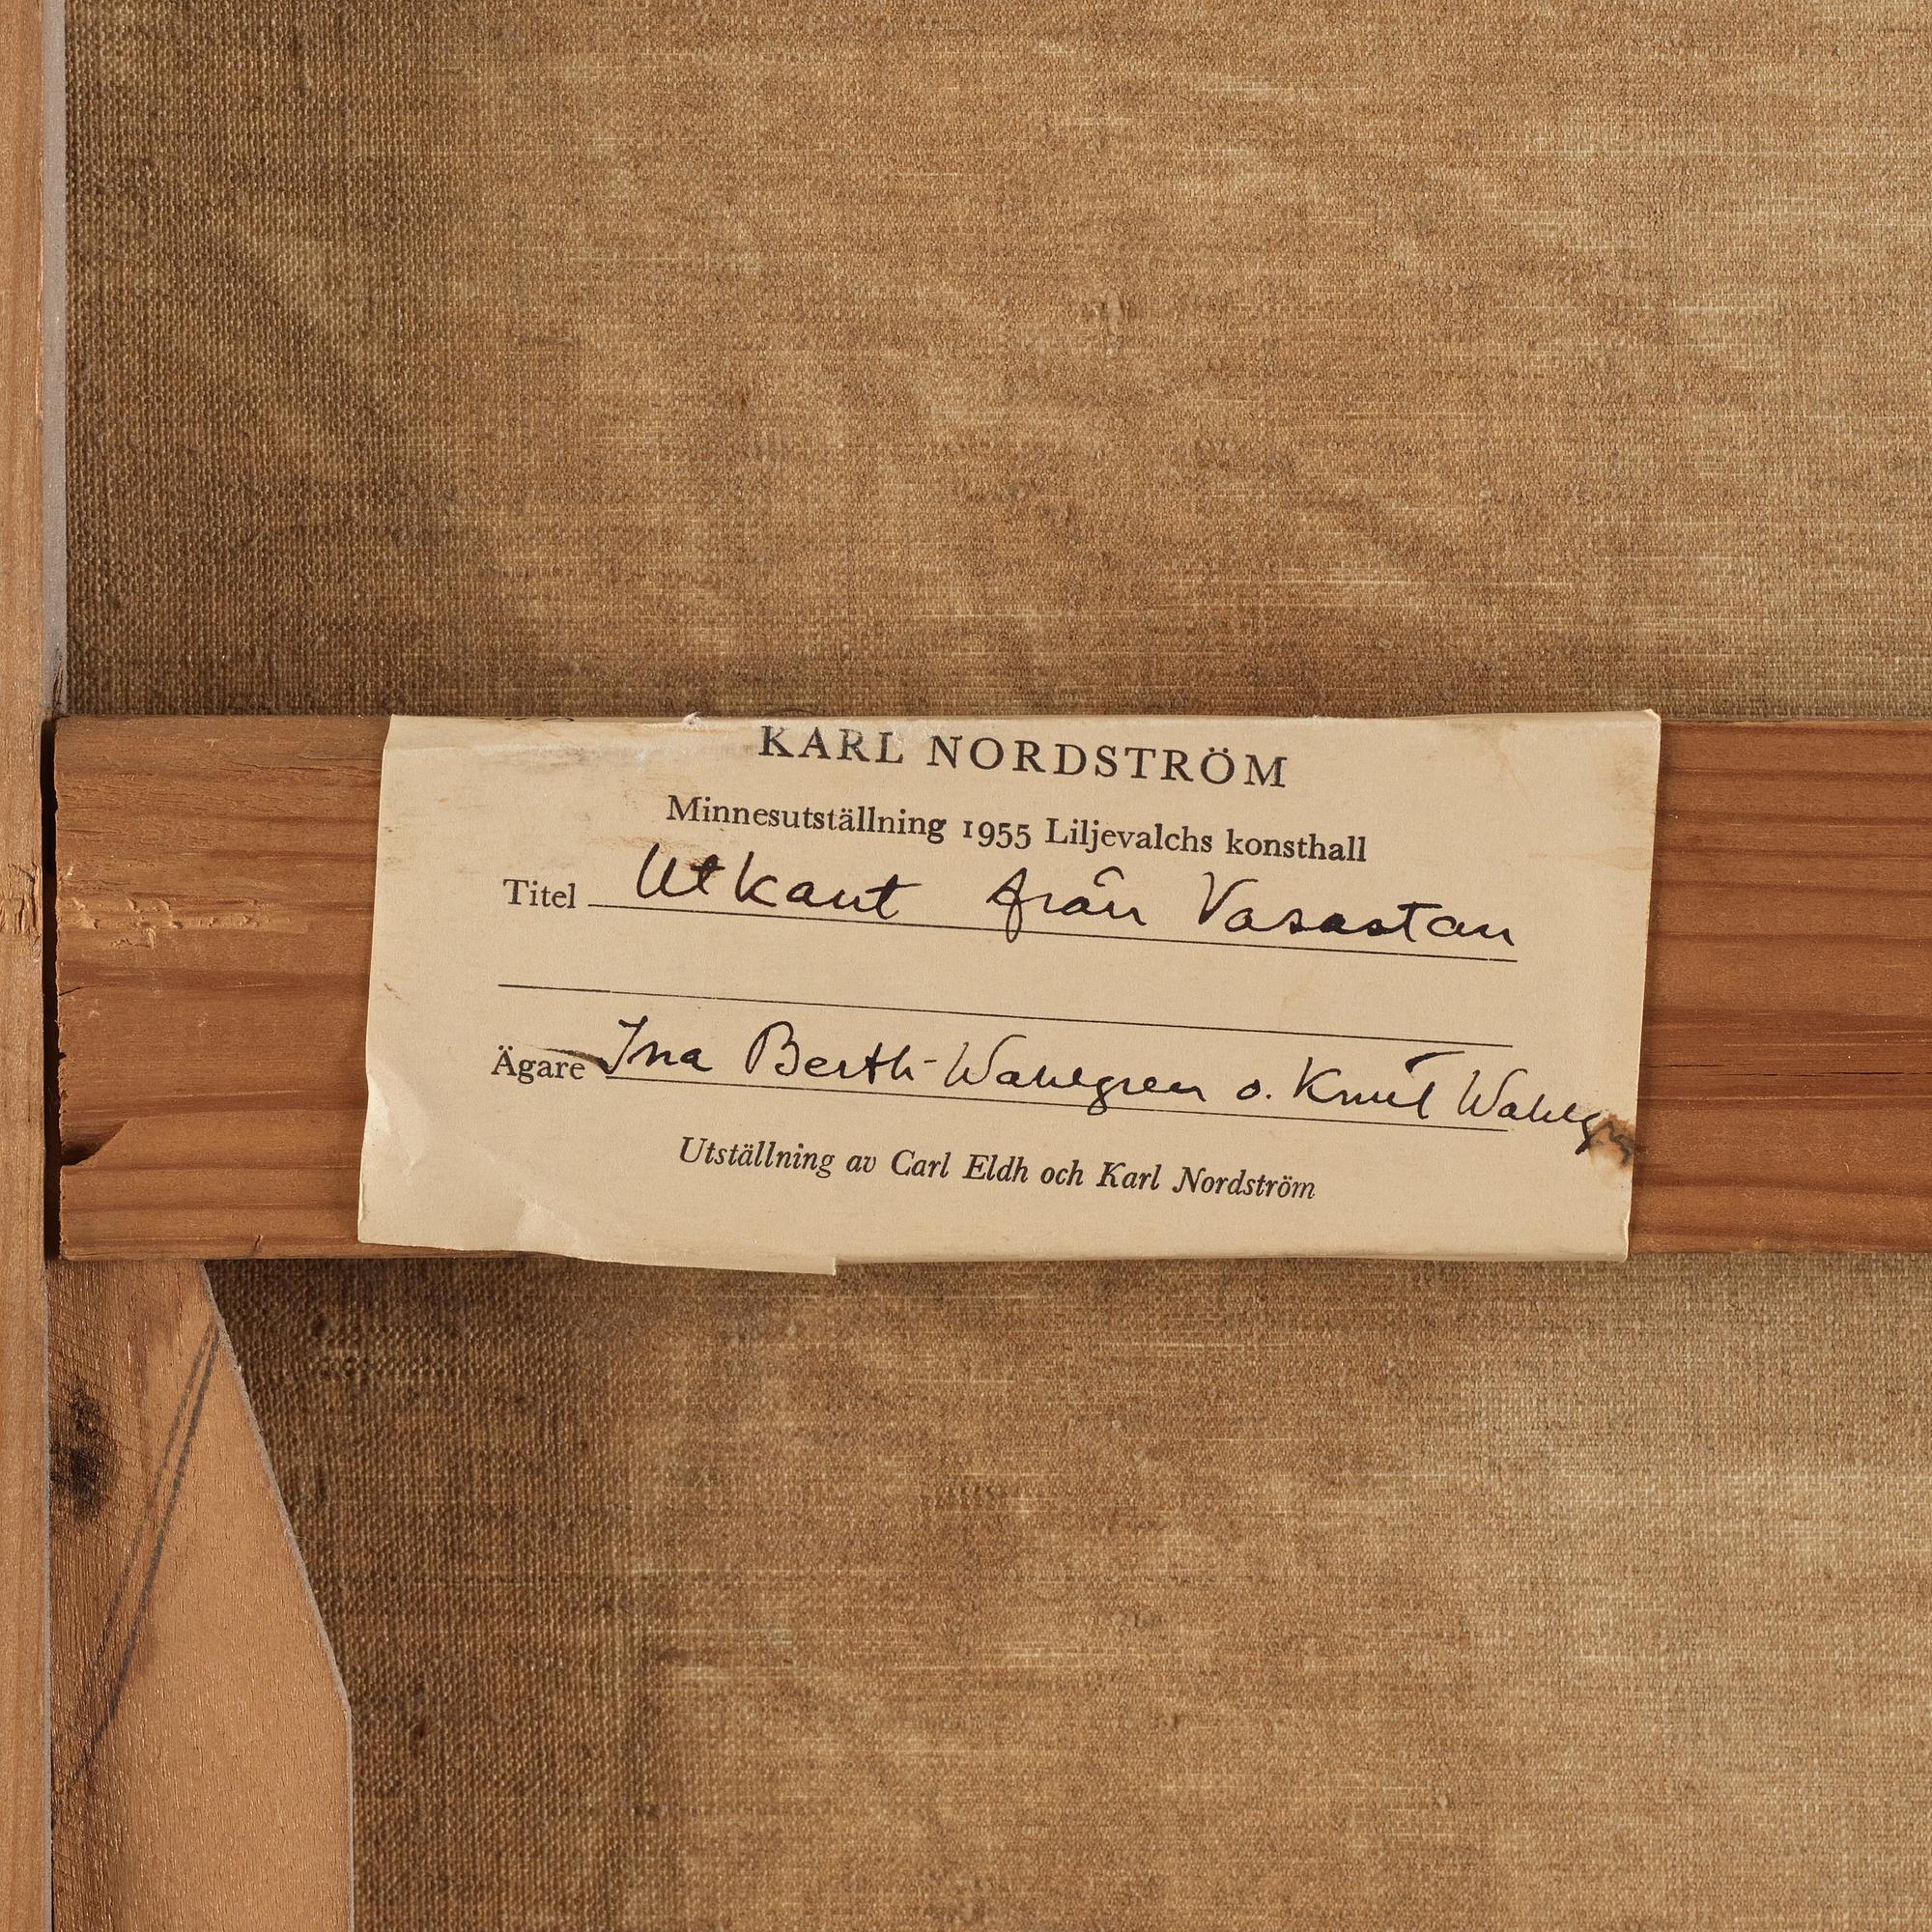 KARL NORDSTRÖM
Minnesutställning 1955 Liljevalchs konsthall
Titel Utkant från Vasastan
Ägare Ina Berth-Wahlgren o. Knut Wahlgr
Utställning av Carl Eldh och Karl Nordström